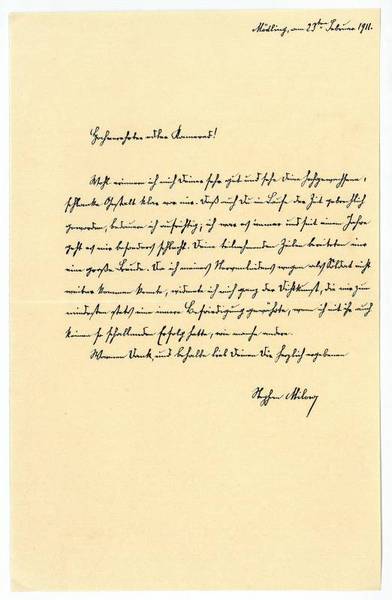 Mödling, am 23ten Februar 1911.
Hochverehrter edler Kamerad!
Wohl erinnere ich mich Deiner sehr gut und sehe Deine hochgewachsene,
schlanke Gestalt klar vor mir. Daß auch Du im Laufe der Zeit gebrechlich
geworden, bedaure ich aufrichtig; ich war es immer und seit einem Jahre
geht es mir besonders schlecht. Deine teilnehmenden Zeilen bereiteten mir
eine große Freude. Da ich meines Nervenleidens wegen als Soldat nicht
weiter kommen konnte, widmete ich mich ganz der Dichtkunst, die mir zum
mindesten stets eine innere Befriedigung gewährte, wenn ich mit ihr auch
keinen so schallenden Erfolg hatte, wie manche andere.
Warmen Dank, und behalte lieb Deinen Dir herzlich ergebenen
Stephan Milow